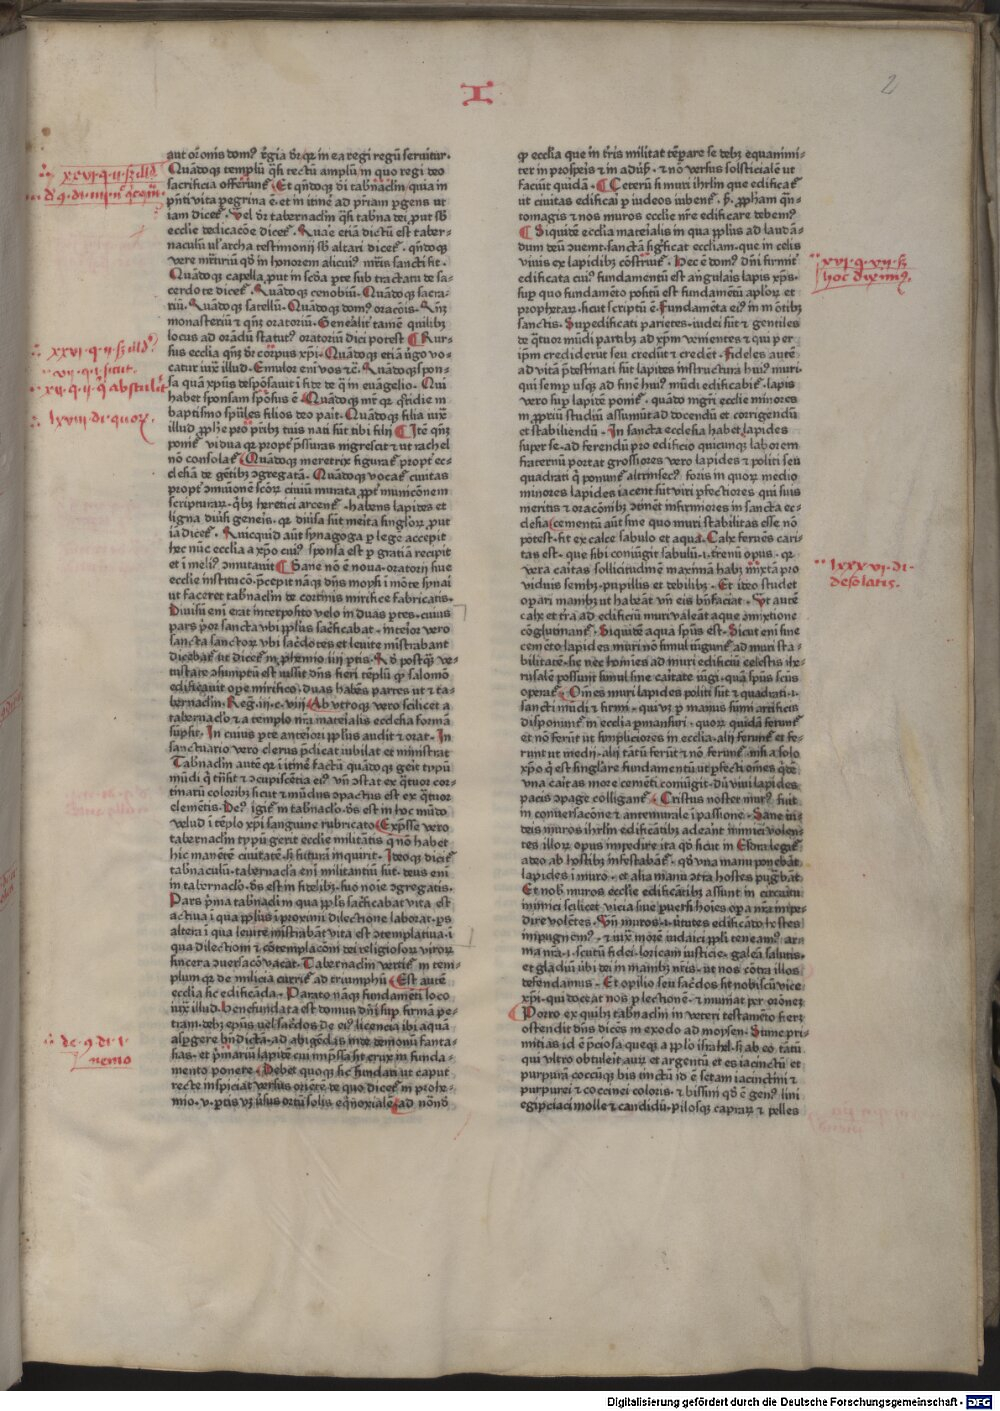 I
2
aut orōnis domꝰ. Rͤgia dr̄ qꝛ in ea regi regū seruitur.
Quādoqꝫ templū q̄si tectū amplū in quo regi deo
sacrificia offerunt᷑. Et qn̄doqꝫ dr̄ tabnāclm̄ quia in
pn̄ti vita pegrina ē. et in itīne ad patriam pergens ut
iam dicet᷑. Vel dr̄ tabernaclm̄ q̄si tabna dei put sb̄
ecclie dedicacōe dicet᷑. Quare etiā dictū est taber-
naculū ul' archa testimonij sb̄ altari dicet᷑. qn̄doqꝫ
vere mr̄tiriū qd̓ in honorem alicuiꝰ mr̄is sancti fit.
Quādoqꝫ capella put in scd̓a pte sub tractatu de sa-
cerdote dicet᷑. Quādoqꝫ cenobiū. Quādoqꝫ sacra-
riū. Quādoqꝫ satellū. Quādoqꝫ domꝰ oracōis. Qn̄qꝫ
monasteriū ⁊ qn̄qꝫ oratoriū. Generalit᷑ tamē quilibꝫ
locus ad orādū statutꝰ oratoriū dici potest ¶ Rur-
sus ecclia qn̄qꝫ dr̄ corpus xp̄i. Quādoqꝫ etiā v̓go vo-
catur iuxͣ illud. Emulor eni vos ⁊c̄. Quādoqꝫ spon-
sa quā xpūs desponsauit i fide de q̄ in euāgelio. Qui
habet sponsam sponsus ē. Quādoqꝫ mr̄ qꝛ qtidie in
baptismo spūales filios deo parit. Quādoqꝫ filia iuxͣ
illud prophe pro prībꝫ tuis nati sūt tibi filij ¶ Itē qn̄qꝫ
ponit᷑ vidua qꝛ propt᷑ p̄ssuras nigrescit ⁊ ut rachel
nō consolat᷑. Quādoqꝫ meretrix figurat᷑ propt᷑ ec-
clesiā de gētibꝫ ꝯgregatā. Quādoqꝫ vocat᷑ ciuitas
propt᷑ ꝯmunionē scōꝝ ciuiū murata propt᷑ municōnem
scripturaꝝ. qꝫ heretici arcent᷑. habens lapides et
ligna diuersi generis. qꝛ diu'sa sūt merita singloꝝ put
iā dicet᷑. Quicquid aūt synagoga p lege accepit
hec nūc ecclia a xp̄o cuiꝰ sponsa est p gratiā recipit
et i meliꝰ ꝯmutauit ¶ Sane nō ē noua. oratorij siue
ecclie institucō. p̄cepit nāqꝫ dn̄s moysi i mōte synai
ut faceret tabnāclm̄ de cortinis mirifice fabricatis.
Diuisū eni erat interposito velo in duas partes. cuius
pars prior sancta vbi pplus sacrificabat. interior vero
sancta sanctoꝝ vbi sacerdotes et leuite mīstrabant
dicebat᷑ ut dicet᷑ in phemio iiij ptis. Qd̓ postqꝫ ve-
tustate ꝯsumptū est iussit dn̄s fieri templū qd̓ salomō
edificauit ope mirifico. duas habēs partes ut ⁊ ta-
bernaclm̄. Reg̃. iij. c. viij. Ab utroqꝫ vero scilicet a
tabernaclo ⁊ a templo nr̄a materialis ecclesia formā
sumpsit. In cuius pte anteriori pplus audit ⁊ orat. In
sanctuario vero clerus p̄dicat iubilat et ministrat
Tabnaclm̄ autē qꝛ i itinē factū quādoqꝫ gerit typū
mūdi q̄ tn̄sit ⁊ ꝯcupiscētia eiꝰ vn̄ ꝯstat ex quatuor cor-
tinarū coloribꝫ sicut ⁊ mūdus ꝯpactus est ex quatuor
elemētis. Deꝰ igit᷑ in tabnaclo. ds̄ est in hoc mūdo
velud i templo xp̄i sanguine rubricato. Exp̄sse vero
tabernaclm̄ typū gerit ecclie militātis q̄ nō habet
hic manētē ciuitatē. sꝫ futurā inquirit. Ideoqꝫ dicit᷑
tabnaculū. tabernacla eni militantiū sūt. deus eni
in tabernaclo. ds̄ est in fidelibꝫ suo noīe ꝯgregatis.
Pars p̄ma tabnacli in qua pplus sacrificabat vita est
actiua i qua pplus i proximi dilectione laborat. ps
altera i qua leuite mīstrabāt vita est ꝯtemplatiua. i
qua dilectioni ⁊ cōtemplacōni dei religiosoꝝ viroꝝ
sincera ꝯuersacō vacat. Tabernaclm̄ vertit᷑ in tem-
plum qꝛ de milicia currit᷑ ad triumphū ¶ Est autē
ecclia sic edificāda. Parato nāqꝫ fundamēti loco
iuxͣ illud. benefundata est domus dn̄i sup firmā pe-
tram. debꝫ ep̄us uel sacerdos de eiꝰ licencia ibi aquā
asp̄gere bn̄dictā. ad abigēdas inde demonū fanta-
sias. et p̄mariū lapidē cui imp̄ssa sit crux in funda-
mento ponere. Debet quoqꝫ sic fundari ut caput
recte inspiciat versus orientē de quo dicet᷑ in prohe-
mio. v. partis vꝫ v̓sus ortū solis eqnoxialē. ad nōnd̓
qꝫ ecclia que in tr̄is militat tēpare se debꝫ equanimi-
ter in prosperis ⁊ in aduersis. ⁊ nō versus solsticiale ut
faciūt quidā. ¶ Ceterū si muri ihrl̄m que edificat᷑
ut ciuitas edificat᷑ p iudeos iubent᷑. p ppham qn̄-
tomagis ⁊ nos muros ecclie nr̄e edificare debem̄?
¶ Siquidē ecclia materialis in qua pplus ad laudā-
dum deū ꝯuenit. sanctā significat eccliam. que in celis
viuis ex lapidibꝫ cōstruit᷑. Hec ē domꝰ dn̄i firmit᷑
edificata cuiꝰ fundamentū est angularis lapis xp̄s.
sup quo fundamēto positū est fundamētū apl̄oꝝ et
prophetaꝝ. sicut scriptū ē. Fundamēta eiꝰ in mōtibꝫ
sanctis. Supedificati parietes. iudei sūt ⁊ gentiles
de quatuor mūdi partibꝫ ad xp̄m venientes ⁊ qui per
ip̄m crediderūt seu credūt ⁊ credent. Fideles autē
ad vitā p̄destinati sūt lapides instructura huiꝰ muri
qui semp usqꝫ ad finē huiꝰ mūdi edificabit᷑. lapis
vero sup lapidē ponit᷑. quādo mgr̄i ecclie minores
in propriū studiū assumūt ad docendū et corrigendū
et stabiliendū. In sancta ecclesia habet lapides
super se. ad ferendū pro edificio quicunqꝫ laborem
fraternū portat grossiores vero lapides ⁊ politi seu
quadrati q̄ ponunt᷑ altrinsecꝰ foris in quoꝝ medio
minores lapides iacent sūt viri p̄fectiores qui suis
meritis ⁊ oracōibꝫ ꝯtinēt infirmiores in sancta ec-
clesia ¶ cementū aūt sine quo muri stabilitas esse nō
potest. fit ex calce sabulo et aqua. Calx feruens cari-
tas est. que sibi coniūgit sabulū. i. trenū opus. qꝛ
vera caritas sollicitudinē maximā habꝫ mixtā pro
viduis senibꝫ. pupillis et debilibꝫ. Et ideo studet
opari manibꝫ ut habeāt vn̄ eis bn̄faciat. Vt autē
calx et tr̄ra ad edificiū muri valeāt aque ꝯmixtione
cōglutinant᷑. Siquidē aqua spūs est. Sicut eni sine
cemēto lapides muri nō simul iūgunt᷑ ad muri sta-
bilitatē. sic nec homīes ad muri edificiū celestis ihe-
rusalē possunt simul sine caritate iūgi. quā spūs scūs
operat᷑. Omēs muri lapides politi sūt ⁊ quadrati. i.
sancti mūdi ⁊ firmi. qui vꝫ p manus sūmi artificis
disponunt᷑ in ecclia p̄mansuri. quoꝝ quidā ferunt᷑
et nō ferūt ut simpliciores in ecclia. alij ferunt᷑ et fe-
runt ut medij. alij tātū ferūt ⁊ nō ferunt᷑ nisi a solo
xp̄o q̄ est singlare fundamentū ut p̄fecti omēs quidē
vna caritas more cemēti coniūgit. dū viui lapides
pacis ꝯpage colligant᷑. Cristus noster murꝰ fuit
in conuersacōne ⁊ antemurale i passione. Sane iu-
deis muros ihrl̄m edificātibꝫ adeant inimici volen-
tes illoꝝ opus impedire ita qd̓ sicut in Esdra legit᷑
adeo ab hostibꝫ infestabāt᷑. qd̓ vna manu ponebāt
lapides i muro. et alia manu ꝯtra hostes pugnabāt
Et nobꝫ muros ecclie edificātibꝫ assunt in circuitu
inimici scilicet vicia siue puersi hoīes opa nr̄a impe-
dire volētes. Vn̄ muros. i. uirtutes edificādo hostes
impugnemꝰ. ⁊ iuxͣ morē iudaici ppli teneamꝰ ar-
ma nr̄a. i. scutū fidei. loricam iusticie. galeā salutis.
et gladiū v̓bi dei in manibꝫ nr̄is. ut nos cōtra illos
defendamus. Et opilio seu sacerdos sit nobiscū vice
xp̄i. qui doceat nos p lectionē. ⁊ muniat per oroñes
¶ Porro ex quibꝫ tabnaclm̄ in veteri testamēto fieret
ostendit dn̄s dicēs in exodo ad moysen. Sume pri-
mitias id ē p̄ciosa queqꝫ a pplo isrl̄. sꝫ ab eo tātū
qui vltro obtulerit aurū et argentū et es iacinctū et
purpurā coccūqꝫ bis tinctū id ē setam iacinctini ⁊
purpurei ⁊ coccinei coloris. ⁊ bissum qd̓ ē genꝰ lini
egipciaci molle ⁊ candidū. pilosqꝫ capraꝝ ⁊ pelles
xxvi. q. ii. sꝫ illd̓
xxvi. q. ii. sꝫ illd̓?
vii. q. i. sicut.
xii. q. ii. q̄ abstulit
lxviii. di. quoꝝ.
de. ꝯ. di. i.
nemo
xvi. q. vii. sꝫ
hoc dixim̄ꝰ.
lxxxvi. di.
desolatis.
Digitalisierung gefördert durch die Deutsche Forschungsgemeinschaft - DFG